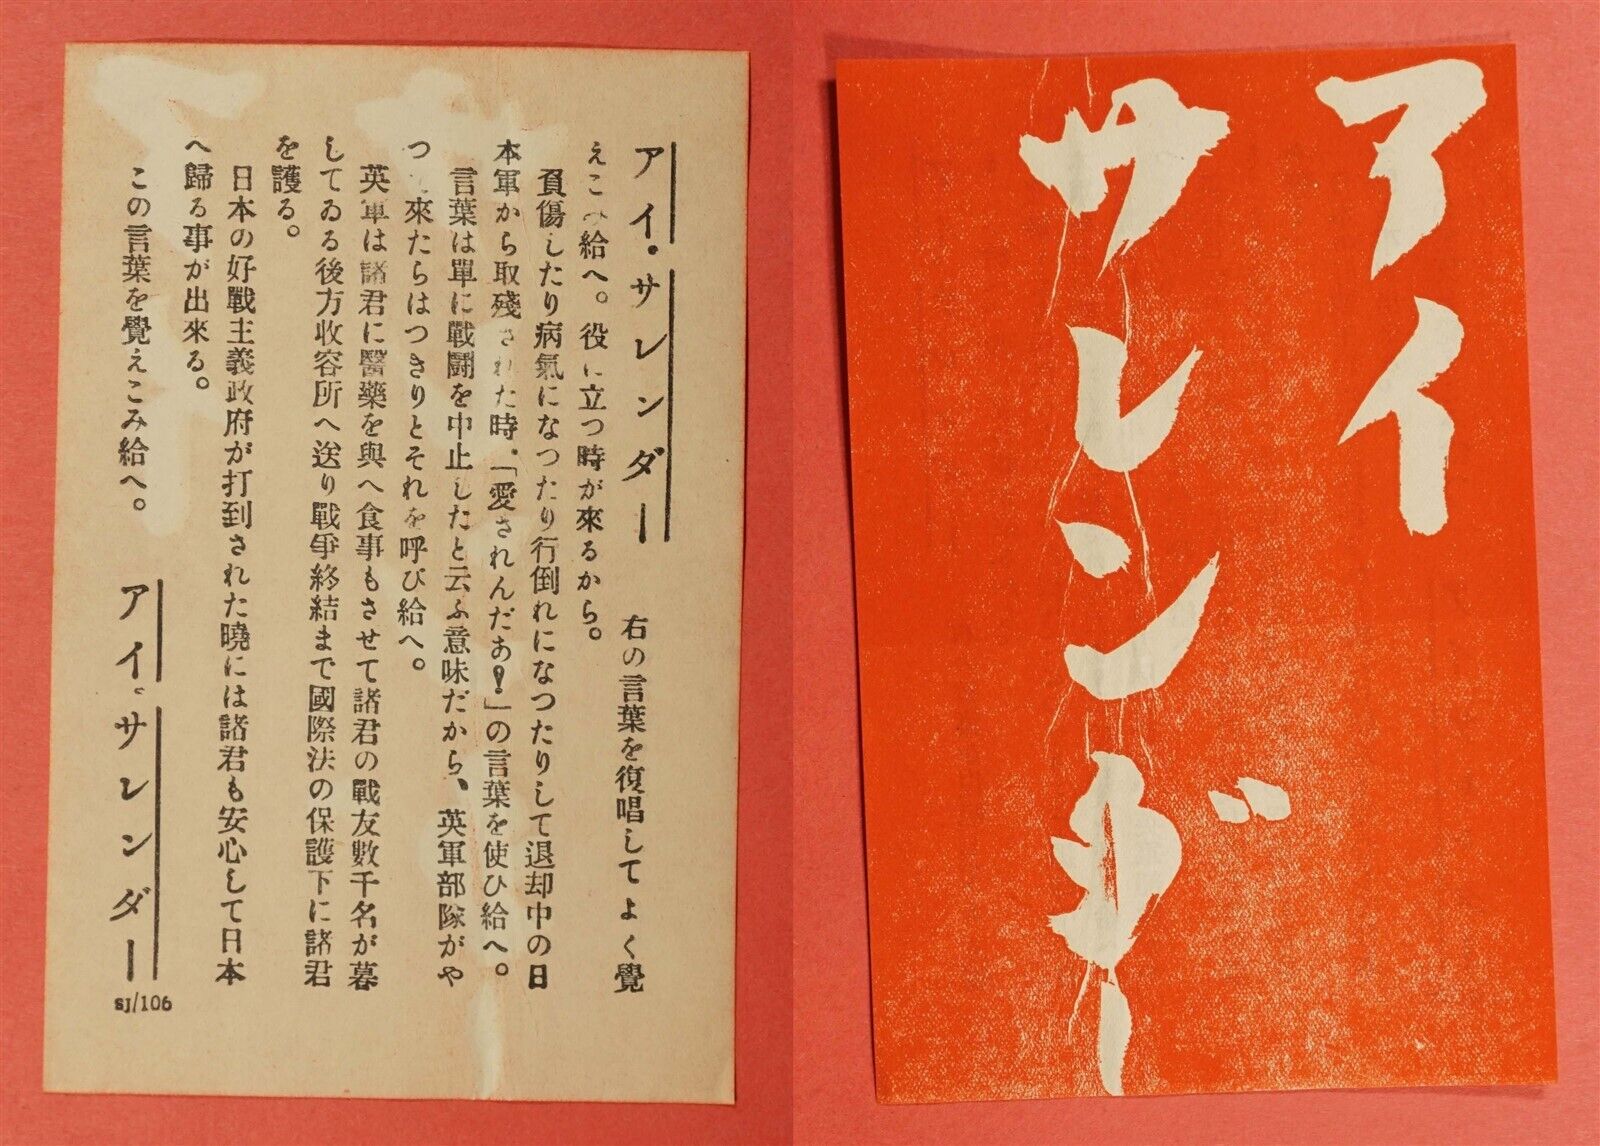 アイ・サレンダー 右の言葉を復唱してよく覺
えこ給へ。役に立つ時が來るから。
負傷したり病氣になつたり行倒れになつたりして退却中の日
本軍から取殘された時、「愛されんだあ!」の言葉を使ひ給へ。
言葉は單に戰鬪を中止したと云ふ意味だから、英軍部隊がや
つて來たらはつきりとそれを呼び給へ。
英軍は諸君に醫藥を與へ食事もさせて諸君の戰友數千名が暮
してゐる後方收容所へ送り戰爭終結まで國際法の保護下に諸君
を護る。
日本の好戰主義政府が打到された曉には諸君も安心して日本
へ歸る事が出來る。
この言葉を覺えこみ給へ。 アイ・サレンダー
SJ/106
アイ
サレンダー